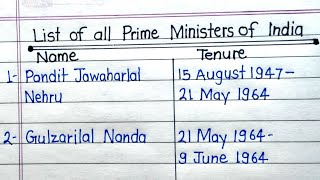 List of all Prime Ministers of India
Name Tenure
1- Pandit Jawaharlal 15 August 1947-
Nehru 21 May 1964
2- Gulzarilal Nanda 21 May 1964-
9 June 1964